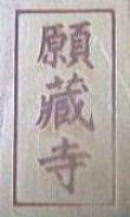 願藏寺